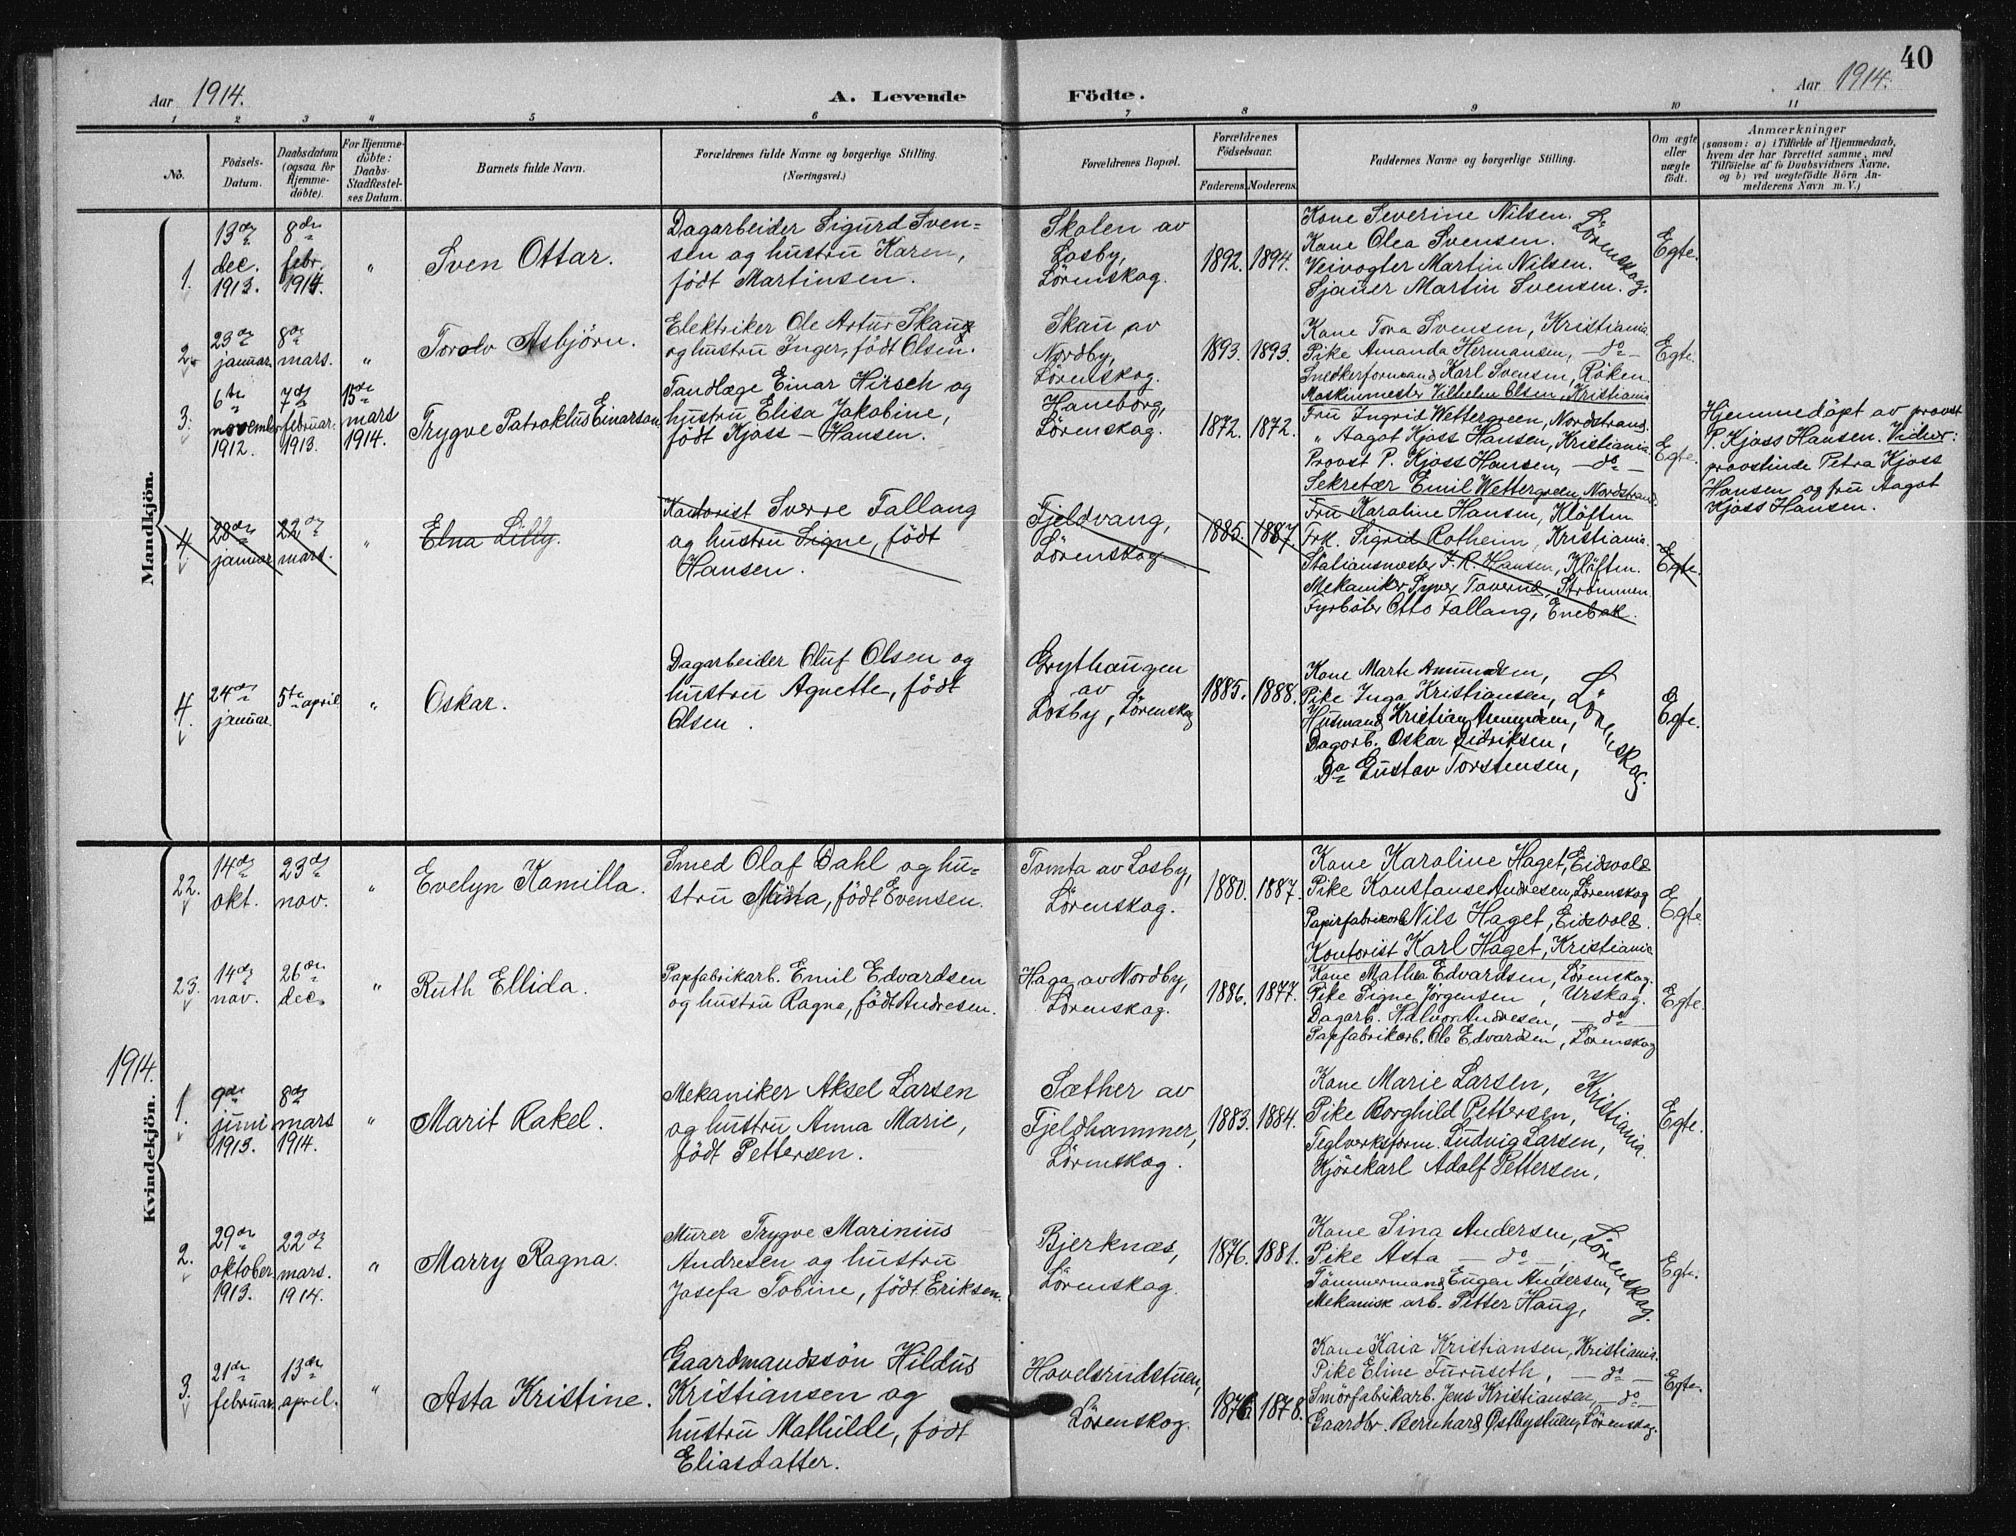 40
Aar 1914.
A. Levende
Födte.
Aar 1914.
1 2 3 4 5 6 7 8 9 10 11
No.
Födsels-Datum.
Daabsdatum (ogsaa for Hjemmedöbte).
For Hjemmedöbte: Daabs-Stadfæstelses Datum.
Barnets fulde Navn.
Forældrenes fulde Navne og borgerlige Stilling.
(Næringsvei.)
Forældrenes Bopæl.
Forældrenes Födselsaar.
Faderens. Moderens.
Faddernes Navne og borgerlige Stilling.
Om ægte eller uægte födt.
Anmærkninger
(saasom: a) i Tilfælde af Hjemmedaab,
hvem der har forrettet samme, med
Tilföielse af to Daabsvidners Navne,
og b) ved uægtefödte Börn An-
melderens Navn m. V.)
Mandkjön.
1.
13de dec. 1913.
8de febr. 1914.
"
Sven Ottar.
Dagarbeider Sigurd Sven=
sen og hustru Karen,
født Martinsen.
Skolen av
Losby,
Lörenskog.
1892. 1894.
Kone Severine Nilsen.
Kone Olea Svensen.
Veivogter Martin Nilsen.
Sjauer Martin Svensen.
Lörenskog.
Egte.
2.
23de januar.
8de mars.
"
Torolv Asbjörn.
Elektriker Ole Artur Skaug
og hustru Inger, født Olsen.
Skau av
Nordby,
Lörenskog.
1893. 1893.
Kone Tora Svensen, Kristiania
Pike Amanda Hermansen, — do —
Snedkerformand Karl Svensen, Röken.
Maskinmester Vilhelm Olsen, Kristiania
Egte.
3.
6te november 1912.
7de februar. 1913.
15de mars 1914.
Trygve Patroklus Einarson
Tandlæge Einar Hirsch og
hustru Elisa Jakobine,
født Kjoss - Hansen.
Haneborg,
Lörenskog.
1872. 1872.
Fru Ingrid Wettergreen, Nordstrand.
" Aagot Kjoss Hansen, Kristiania
Provst P. Kjoss Hansen, — do —
Sekretær Emil Wettergreen, Nordstrand
Egte.
Hjemmedöpt av provst
P. Kjoss Hansen. Vidner:
provstinde Petra Kjoss
Hansen og fru Aagot
Kjoss Hansen.
4
28de januar
22de mars.
"
Elna Lilly.
Kontorist Sverre Fallang
og hustru Signe, født
Hansen.
Fjeldvang,
Lörenskog
1885. 1887.
Fru Karoline Hansen, Klöften
Frk. Sigrid Rotheim, Kristiania.
Stationsmester J. R. Hansen, Klöften.
Mekaniker Syver Taverud, Strömmen
Fyrböter Otto Fallang, Enebak.
Egte.
4.
24de januar.
5te april
"
Oskar.
Dagarbeider Oluf Olsen og
hustru Agnette, født
Olsen.
Grythaugen
av
Losby, Lörenskog
1885. 1888.
Kone Marte Amundsen,
Pike Inga Kristiansen,
Husmand Kristian Amundsen,
Dagarb. Oskar Didriksen,
Do Gustav Torstensen,
Lörenskog.
Egte.
1914.
Kvindekjön.
22.
14de okt.
23de nov.
"
Evelyn Kamilla.
Smed Olaf Dahl og hu=
stru Mina, født Evensen.
Tomta av Losby,
Lörenskog.
1880. 1887.
Kone Karoline Haget, Eidsvold
Pike Konstanse Andresen, Lörenskog
Papirfabrikarb Nils Haget, Eidsvold.
Kontorist Karl Haget, Kristiania
Egte
23.
14de nov.
26de dec.
"
Ruth Ellida.
Papfabrikarb. Emil Edvardsen
og hustru Ragna, født Andresen.
Haga av Nordby,
Lörenskog.
1886. 1877.
Kone Mathea Edvardsen, Lörenskog
Pike Signe Jörgensen, Urskog.
Dagarb. Halvor Andresen, — do —
Papfabrikarb. Ole Edvardsen, Lörenskog
Egte.
1.
9de juni 1913.
8de mars 1914.
"
Marit Rakel.
Mekaniker Aksel Larsen
og hustru Anna Marie,
født Pettersen.
Sæther av
Fjeldhammer,
Lörenskog.
1883. 1884.
Kone Marie Larsen,
Pike Borghild Pettersen,
Teglverksform. Ludvig Larsen,
Kjörekarl Adolf Pettersen,
Kristiania.
Egte.
2.
29de oktober 1913.
22de mars. 1914.
"
Marry Ragna.
Murer Trygve Marinius
Andresen og hustru
Josefa Tobine, født Eriksen.
Bjerknæs,
Lörenskog.
1876. 1881.
Kone Sina Andersen,
Pike Asta — do —,
Tömmermand Eugen Andersen,
Mekanisk arb. Petter Haug,
Lörenskog.
Egte.
3.
21de februar.
13de april.
"
Asta Kristine.
Gaardmandssön Hildus
Kristiansen og
hustru Mathilde, født
Eliasdatter.
Hovelsrudstuen,
Lörenskog.
1876. 1878.
Kone Kaia Kristiansen, Kristiania.
Pike Eline Furuseth, — do —
Smörfabrikarb. Jens Kristiansen, — do —
Gaardbr. Bernhard Östbystuen, Lörenskog.
Egte.